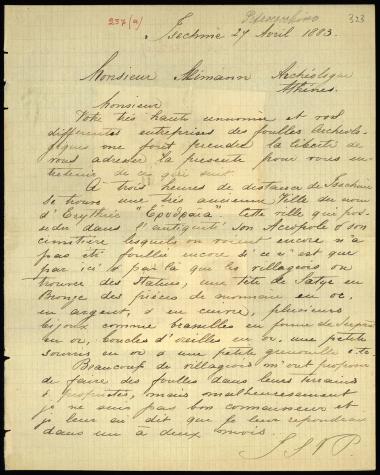 237(a)
323
Tschesmé 27 Avril 1883.
Monsieur Archéologue
Athènes.
Monsieur
Votre très haute renommée et vos
différentes entreprises des fouilles Archeolo-
giques me font prendre la liberté de
vous adresser la presente pour vous en-
tretenir de ce qui suit.
A trois heures de distance de
se trouve une très ancienne Ville du nom
d'Erythrie "Ερυθραια". Cette ville que pos-
dans l'antiquité son Acropole & son
cimetière lesquels on voient encore n'a
pas été fouillé encore si ce n'est que
par ici & par là que les villageois ont
trouver des Statues, une tête de Satyr en
Bronze des pièces de monnaie en or,
en argent, & en cuivre, plusieurs
bijoux comme en forme de
en or, boucles d'oreilles en or, une petite
souris en or & une petite grenouille etc.
Beaucoup de villageois m'ont proposé
de faire des fouilles dans leurs terrains
& proprietés, mais malheureusement
je ne suis pas bon connaisseur et
je leur ai dit que je leur repondrai
dans un à deux mois.